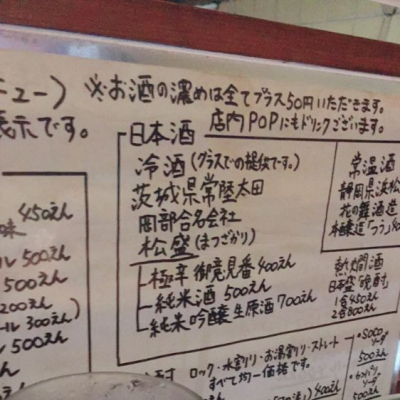 ュー) ※お酒の濃めは全てプラス50円いただきます。
表示です。 店内POPにもドリンクございます。
日本酒
冷酒(グラスでの提供です。)
茨城県常陸太田
岡部合名会社
松盛(まつざかり)
極辛 御意見番 400えん
純米酒 500えん
純米吟醸生原酒 700えん
常温酒
静岡県浜松
花の舞酒造
熱燗酒
日本盛
1合450えん
2合800えん
味 450えん
ル 500えん
500えん
200えん
ール 300えん)
ル 500えん
500えん
ロック・水割り・お湯割り・ストレート
すべて均一価格です。
400えん
500えん
500えん